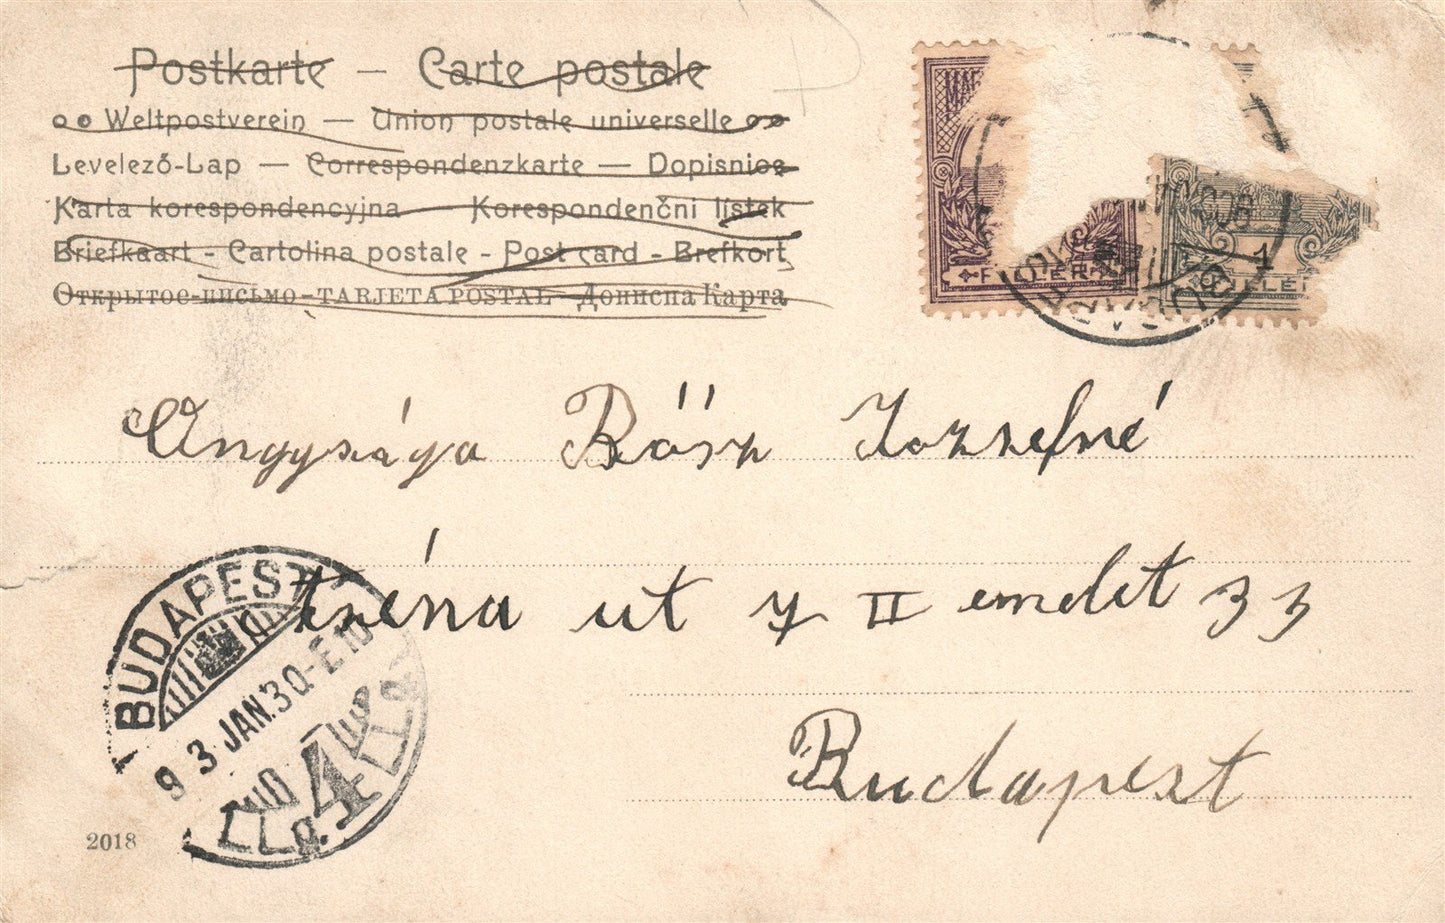 Postkarte — Carte postale
Weltpostverein — Union postale universelle
Levelező-Lap — Correspondenzkarte — Dopisnice
Karta korespondencyjna Korespondenčni listek
Briefkaart - Cartolina postale - Post card - Brefkort
Открытое-письмо-TARJETA POSTAL-Дописна Карта
MAG
FILLÉR
1
Angysága Bősz Jozsefné
tréna ut 7 II emelet 33
BUDAPEST
93 JAN.30.-E.10
4
Budapest
2018